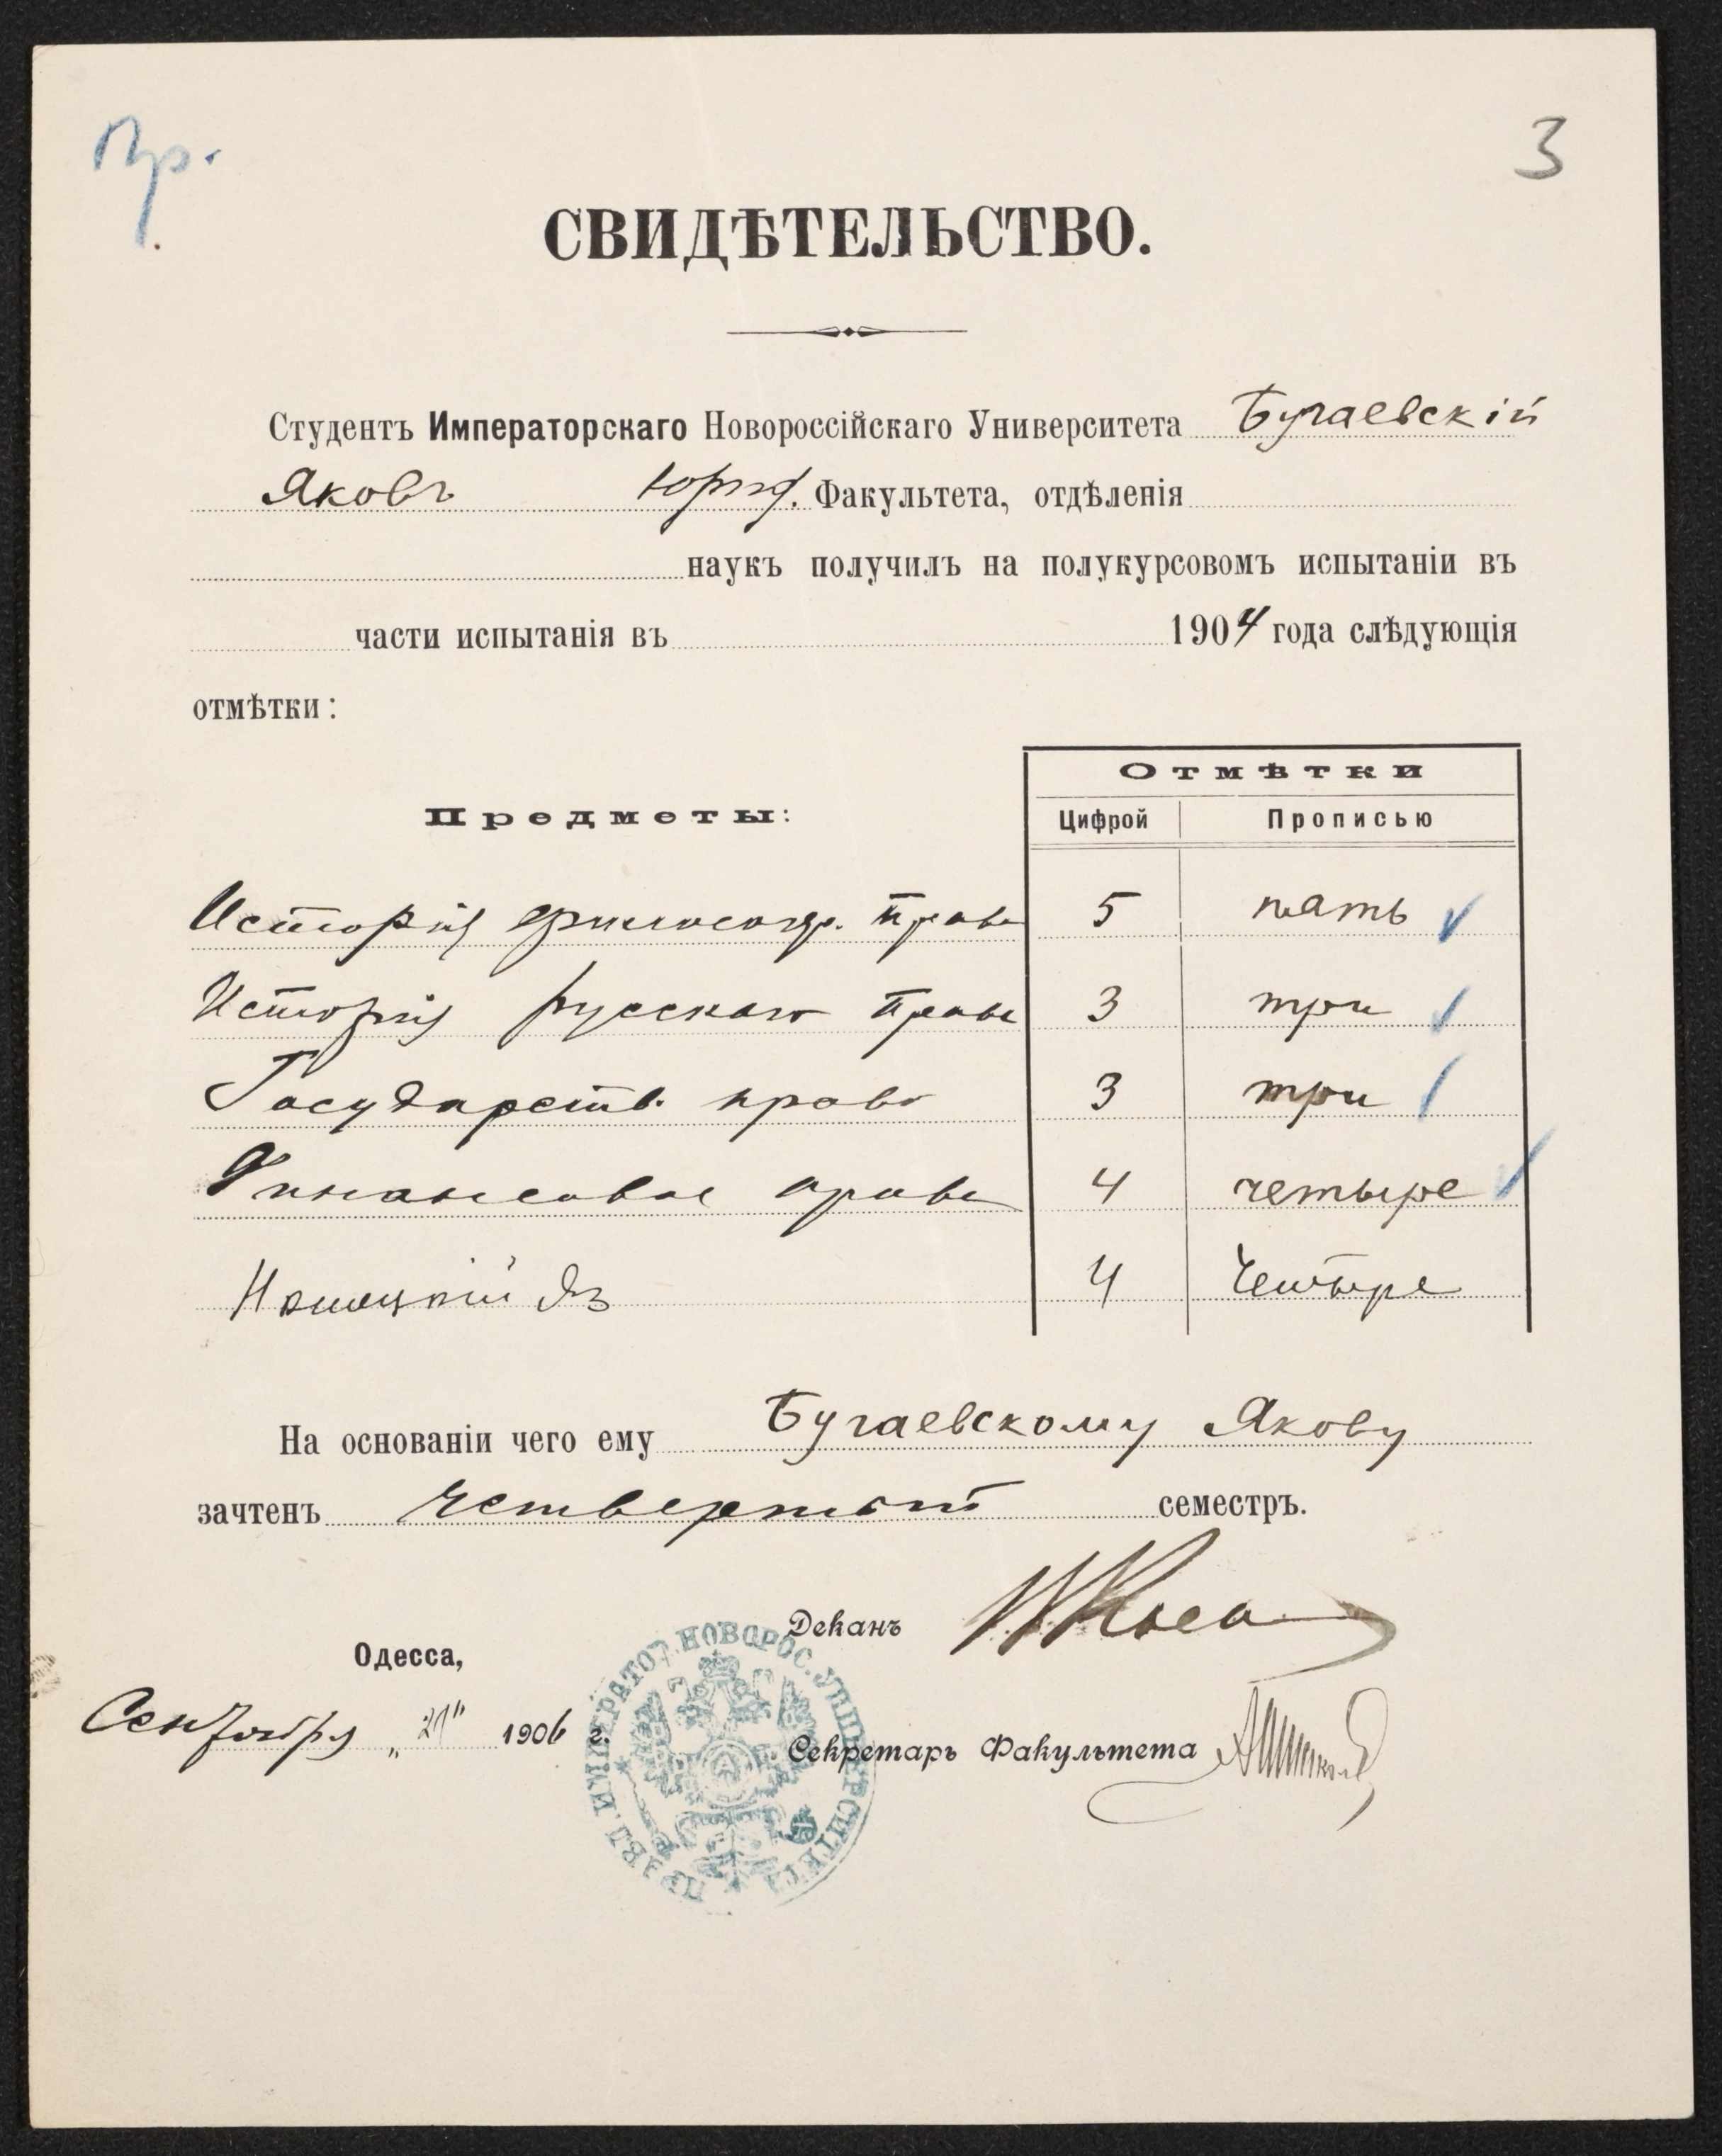 Пр.
3
СВИДѢТЕЛЬСТВО.
Студентъ Императорскаго Новороссійскаго Университета Бугаевскій
Яковъ Юрид. Факультета, отдѣленія
наукъ получилъ на полукурсовомъ испытаніи въ
части испытанія въ 1904 года слѣдующія
отмѣтки:
Предметы: Отмѣтки
Цифрой Прописью
Исторія философ. права 5 пять
Исторія русскаго права 3 три
Государств. право 3 три
Финансовое право 4 четыре
Нѣмецкій яз 4 четыре
На основаніи чего ему Бугаевскому Якову
зачтенъ четвертый семестръ.
Деканъ
Одесса,
Сентября „21" 1906 г.
Секретарь Факультета
ПРАВЛ. ИМПЕРАТОР. НОВОРОС. УНИВЕРСИТЕТА